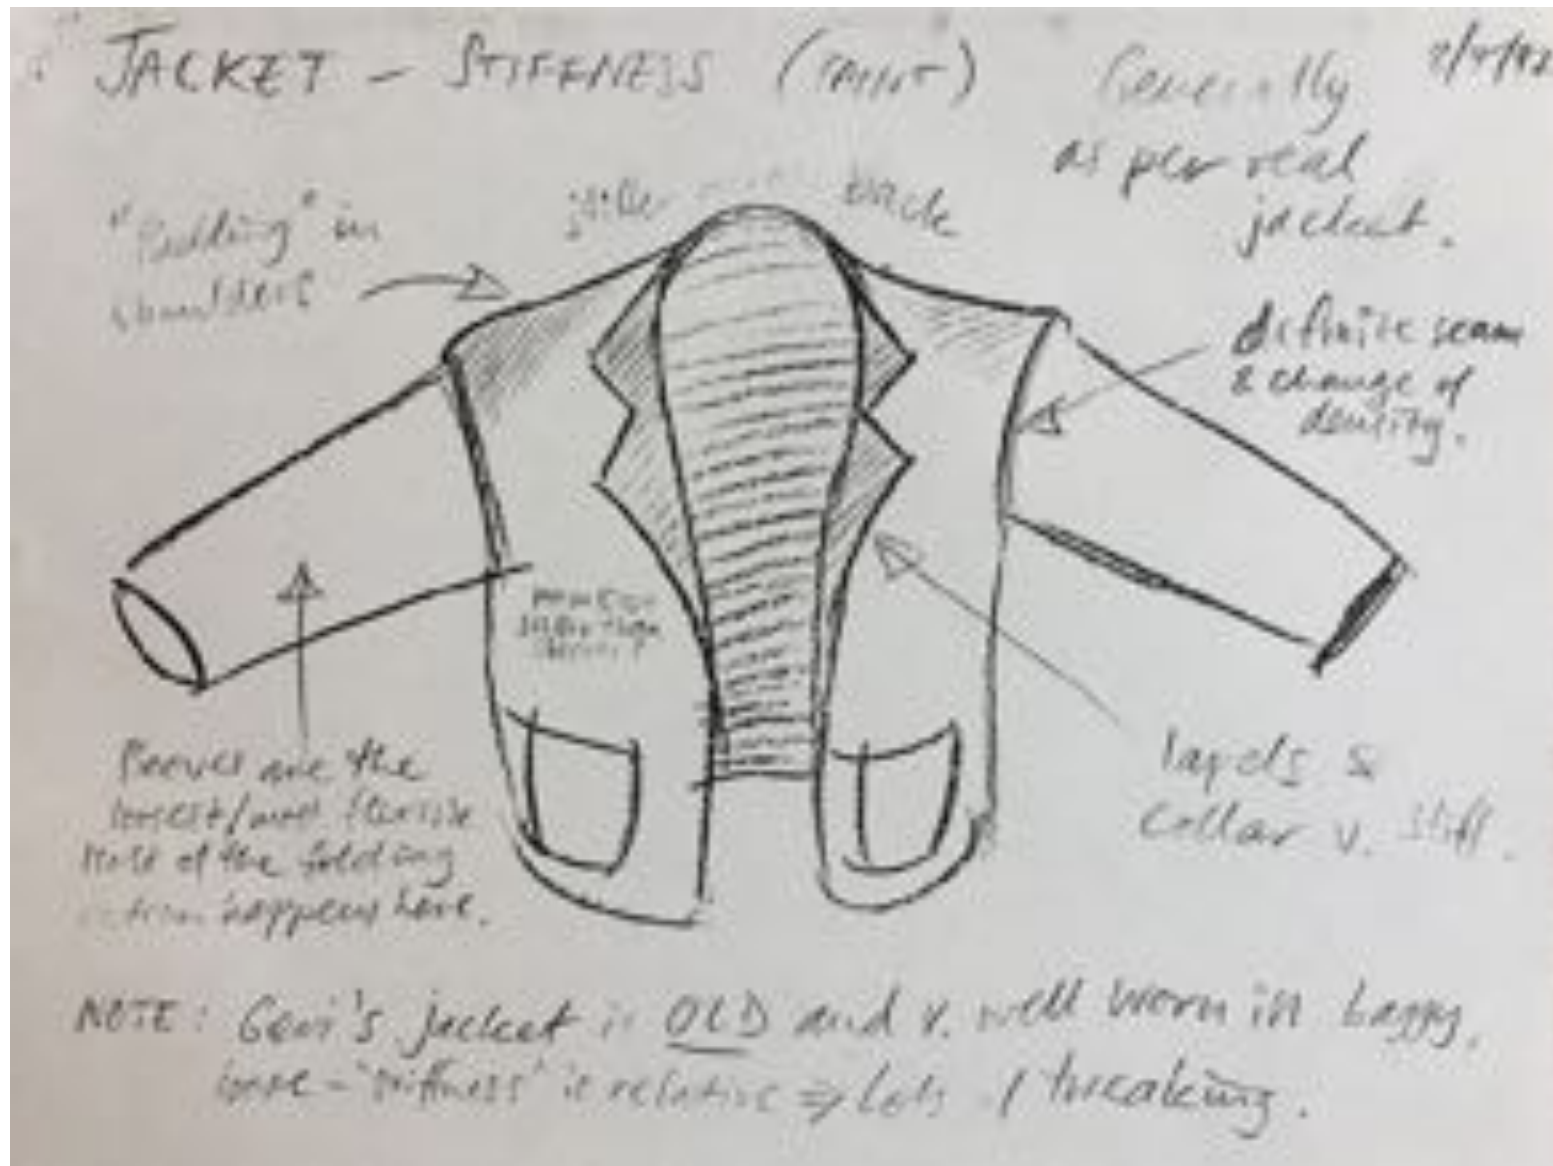 JACKET - STIFFNESS (PAINT)
Generally
as per real
jacket.
"Padding" in
shoulders
back
definite seam
& change of
density.
Sleeves are the
loosest/most flexible
Most of the folding
action happens here.
lapels &
collar v. stiff.
NOTE: Geri's jacket is OLD and v. well worn in baggy,
loose - 'stiffness' is relative ⇒ Lots of tweaking.